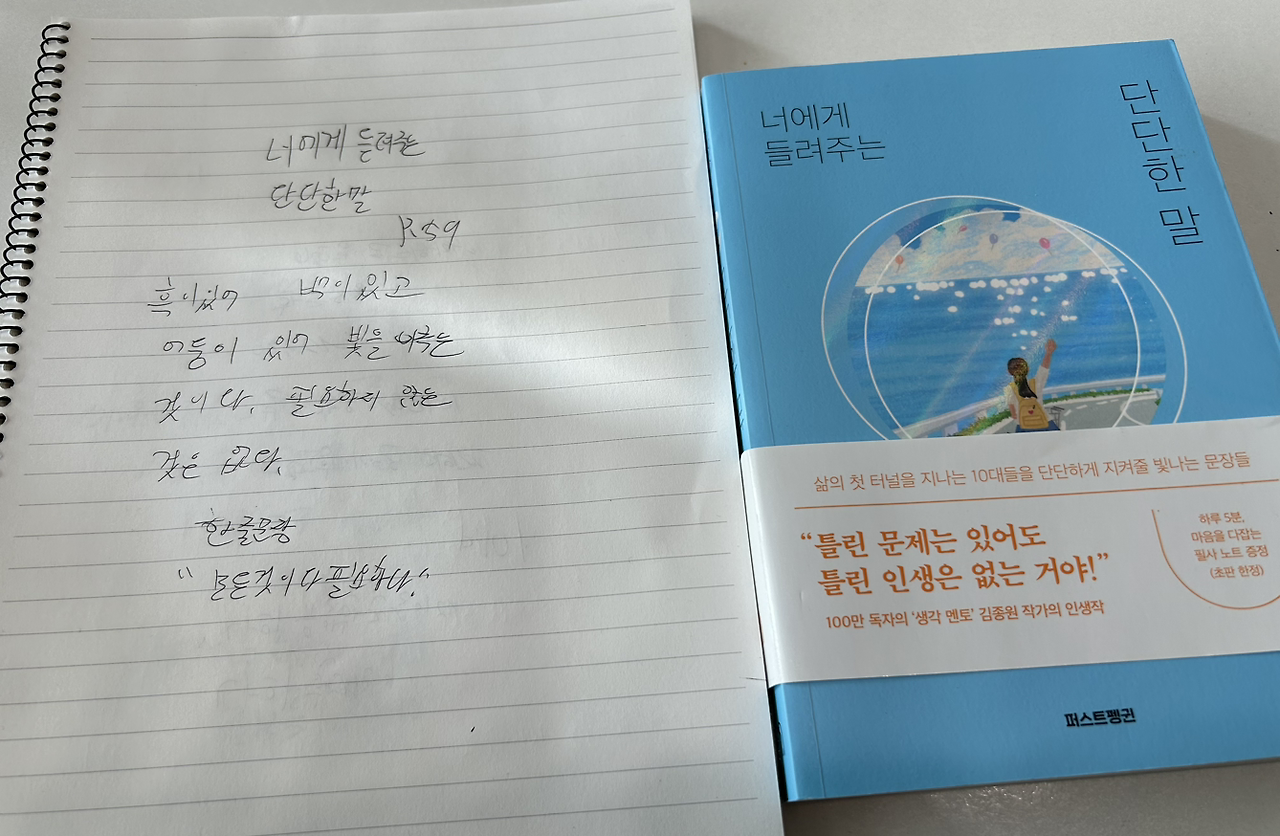 너에게 들려주는
단단한말
P.59
흑이있어 백이 있고
어둠이 있어 빛을 비추는
것이다. 필요하지 않은
것은 없다.
한글문장
"모든것이 다 필요하다."
너에게
들려주는
단단한 말
삶의 첫 터널을 지나는 10대들을 단단하게 지켜줄 빛나는 문장들
"틀린 문제는 있어도
틀린 인생은 없는 거야!"
100만 독자의 '생각 멘토' 김종원 작가의 인생작
하루 5분,
마음을 다잡는
필사 노트 증정
(초판 한정)
퍼스트펭귄